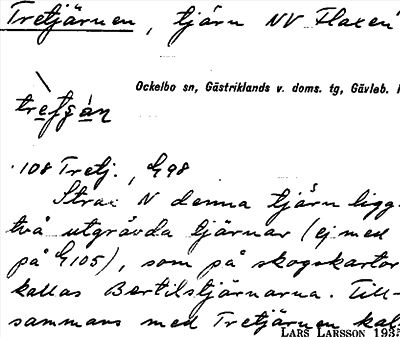 Tretjärnen, tjärn NV Flaxen
Ockelbo sn, Gästriklands v. doms. tg, Gävleb. l
trefsån
108 Tretj., G98
Strax N denna tjärn ligg
två utgrävda tjärnar (ej med
på G105), som på skogskartor
kallas Bertilstjärnarna. Till-
sammans med Tretjärnen kal
LARS LARSSON 1935